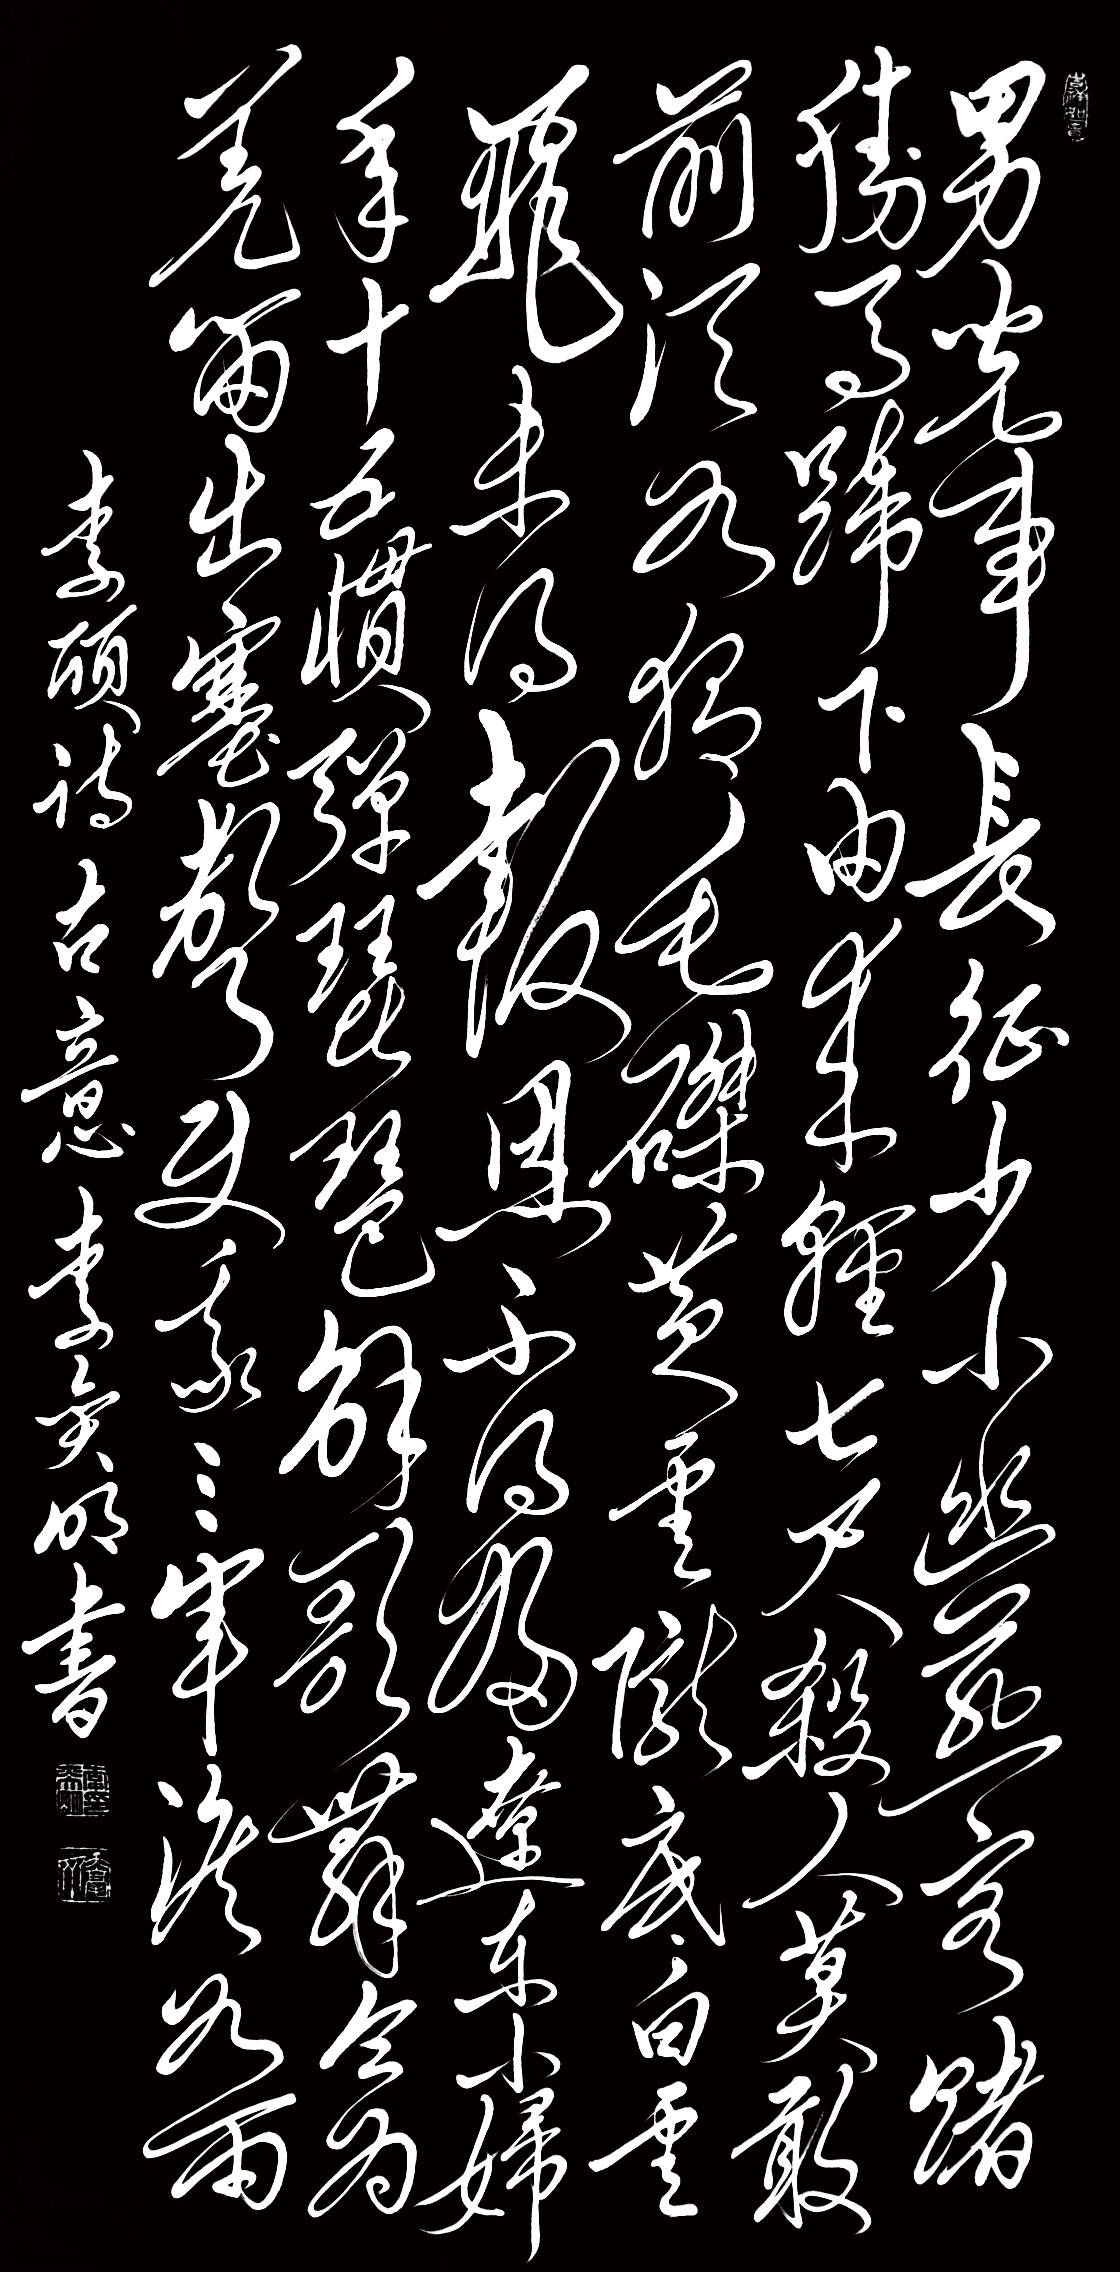 男兒事長征少小幽燕客賭
勝馬蹄下由來輕七尺殺人莫敢
前須如猬毛磔黄雲隴底白雲
飛未得報恩不得歸遼東小婦
年十五慣彈琵琶解歌舞今为
羌笛出塞聲使我三軍淚如雨
李頎詩古意 李奕明書